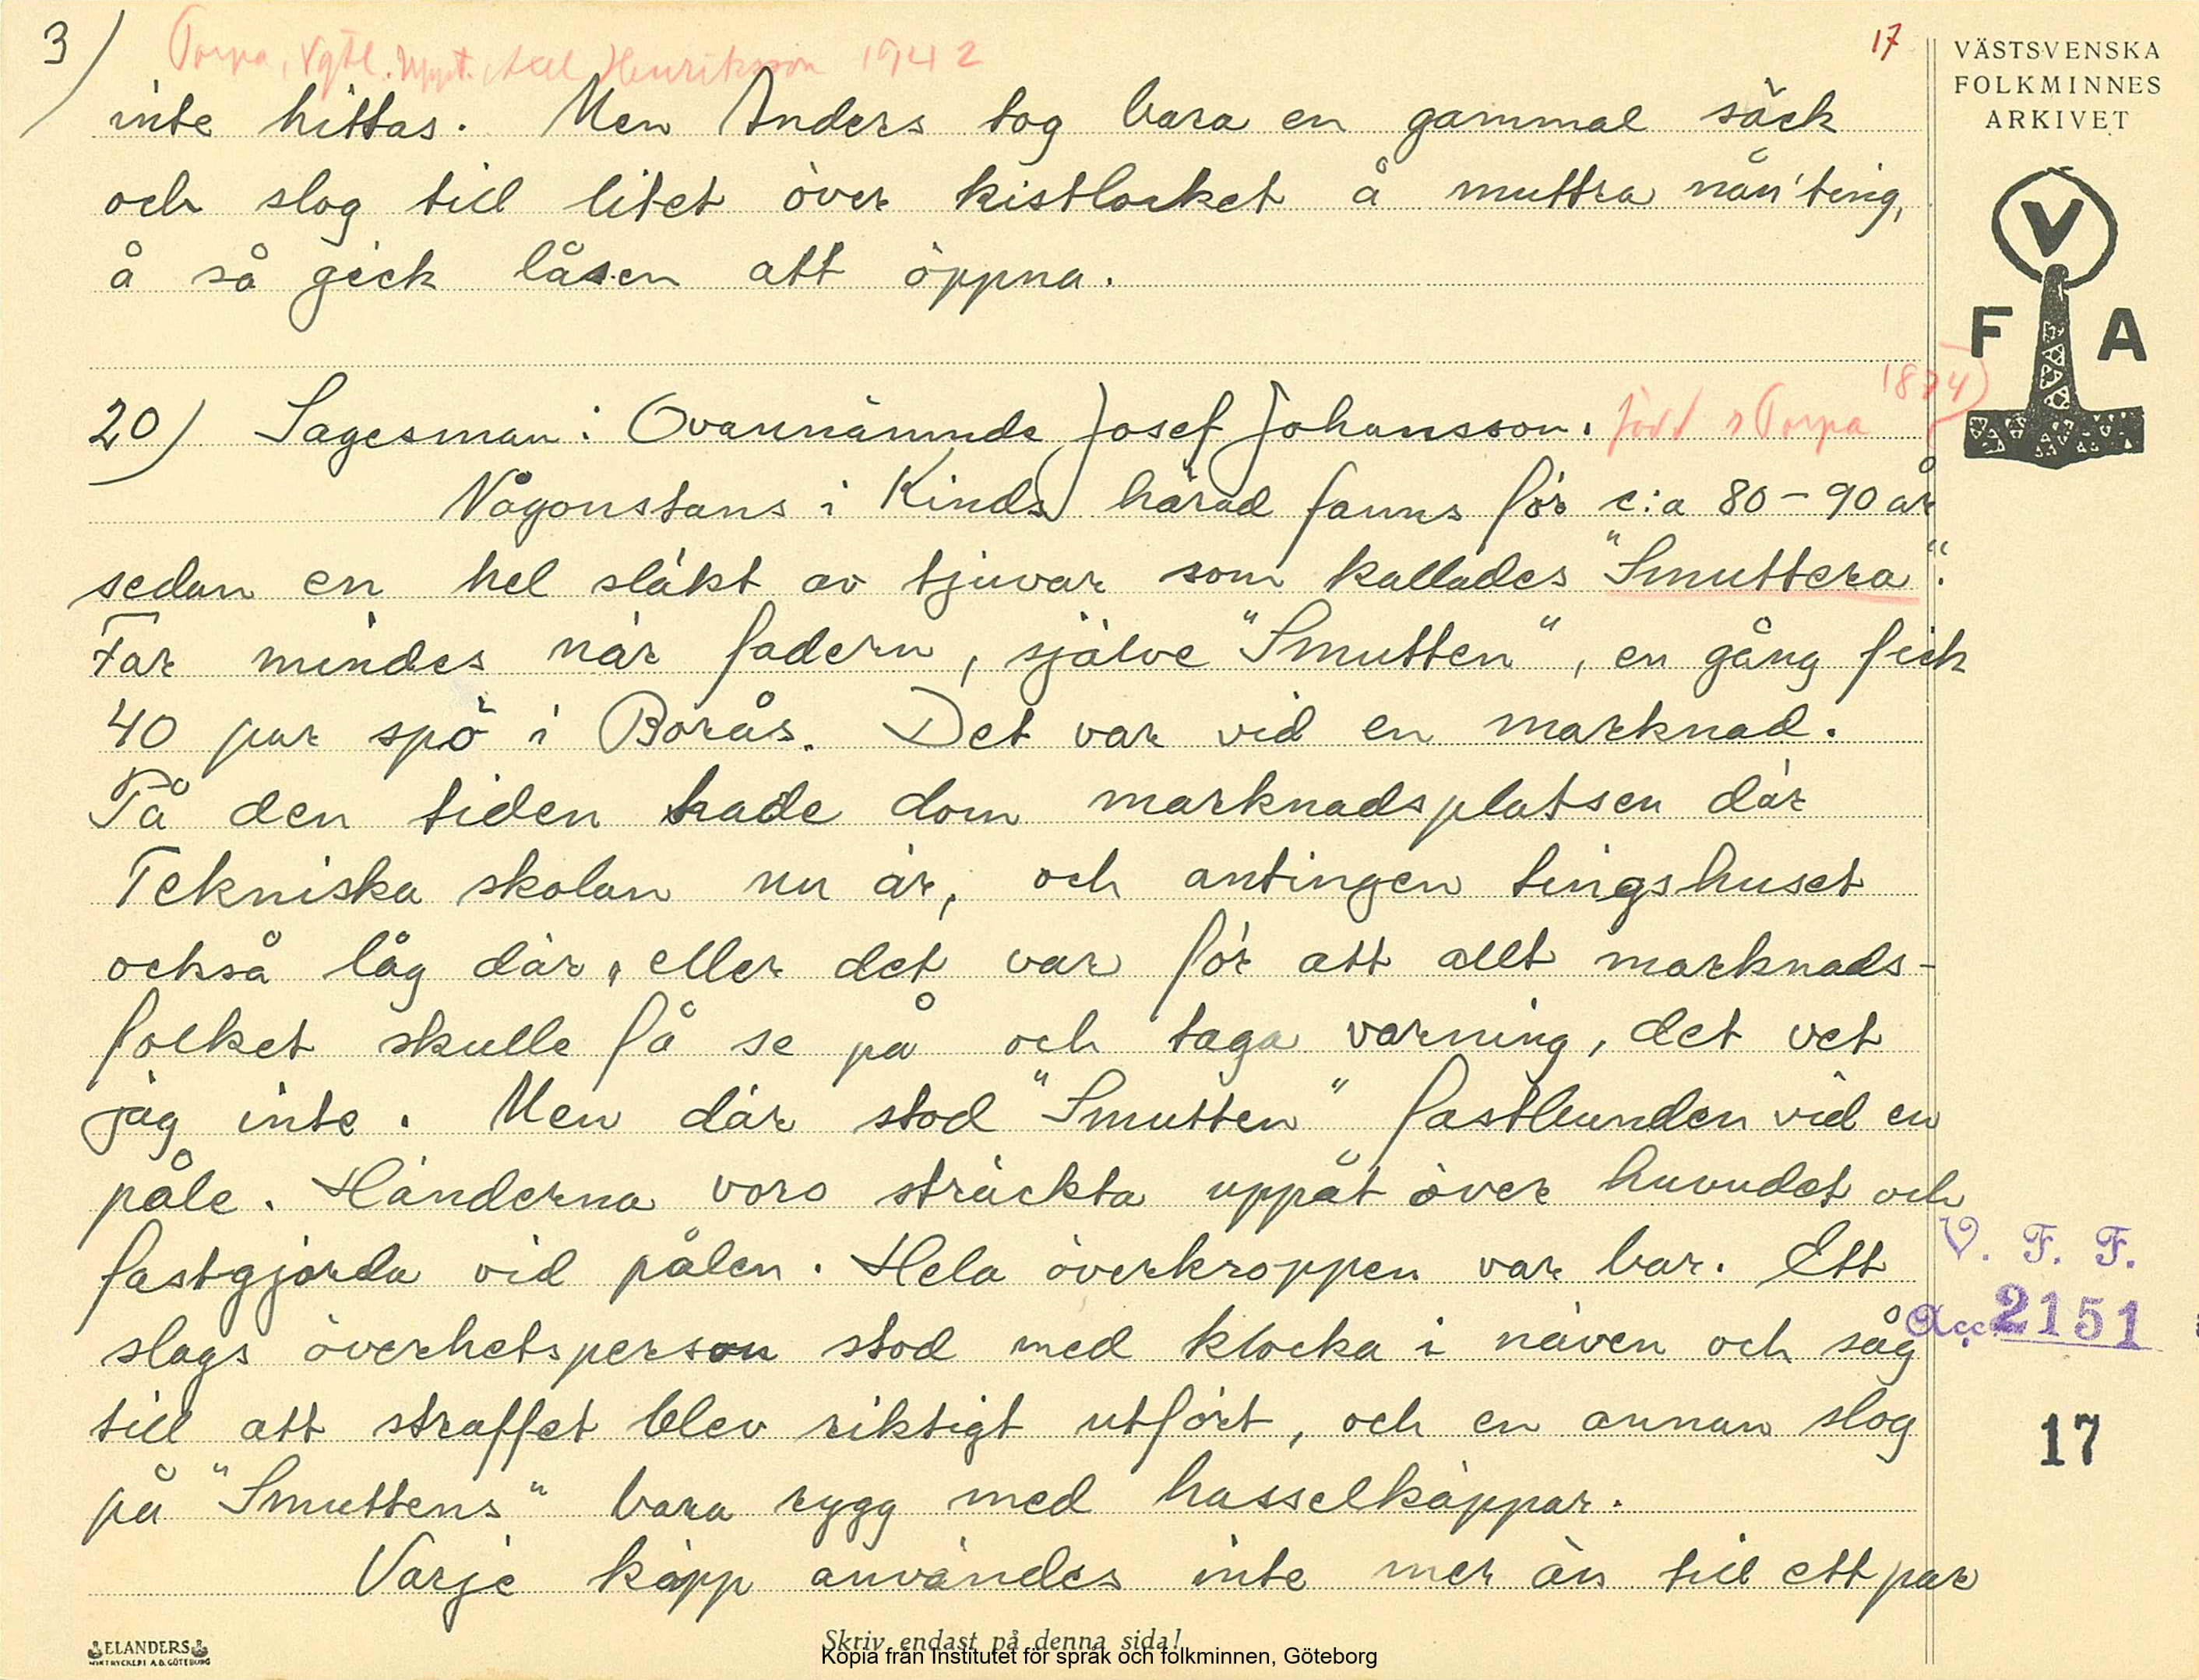 3) Torpa, Vgtl. Uppt. Axel Henriksson 1942 17
inte hittas. Men Anders tog bara en gammal säck
och slog till litet över kistlocket å muttra nån'ting,
å så gick låsen att öppna.
20) Sagesman: Ovannämnde Josef Johansson. född i Torpa 1874)
Någonstans i Kinds härad fanns för c:a 80-90 år
sedan en hel släkt av tjuvar som kallades "Smuttera".
Far mindes när fadern, själve "Smutten", en gång fick
40 par spö i Borås. Det var vid en marknad.
På den tiden hade dom marknadsplatsen där
Tekniska skolan nu är, och antingen tingshuset
också låg där, eller det var för att allt marknads-
folket skulle få se på och taga varning, det vet
jag inte. Men där stod "Smutten" fastbunden vid en
påle. Händerna voro sträckta uppåt över huvudet och
fastgjorda vid pålen. Hela överkroppen var bar. Ett
slags överhetsperson stod med klocka i näven och såg
till att straffet blev riktigt utfört, och en annan slog
på "Smuttens" bara rygg med hasselkäppar.
Varje käpp användes inte mer än till ett par
VÄSTSVENSKA
FOLKMINNES
ARKIVET
V
F A
V. F. F.
Acc. 2151
17
ELANDERS
BOKTRYCKERI A.B. GÖTEBORG
Skriv endast på denna sida!
Kopia från Institutet för språk och folkminnen, Göteborg